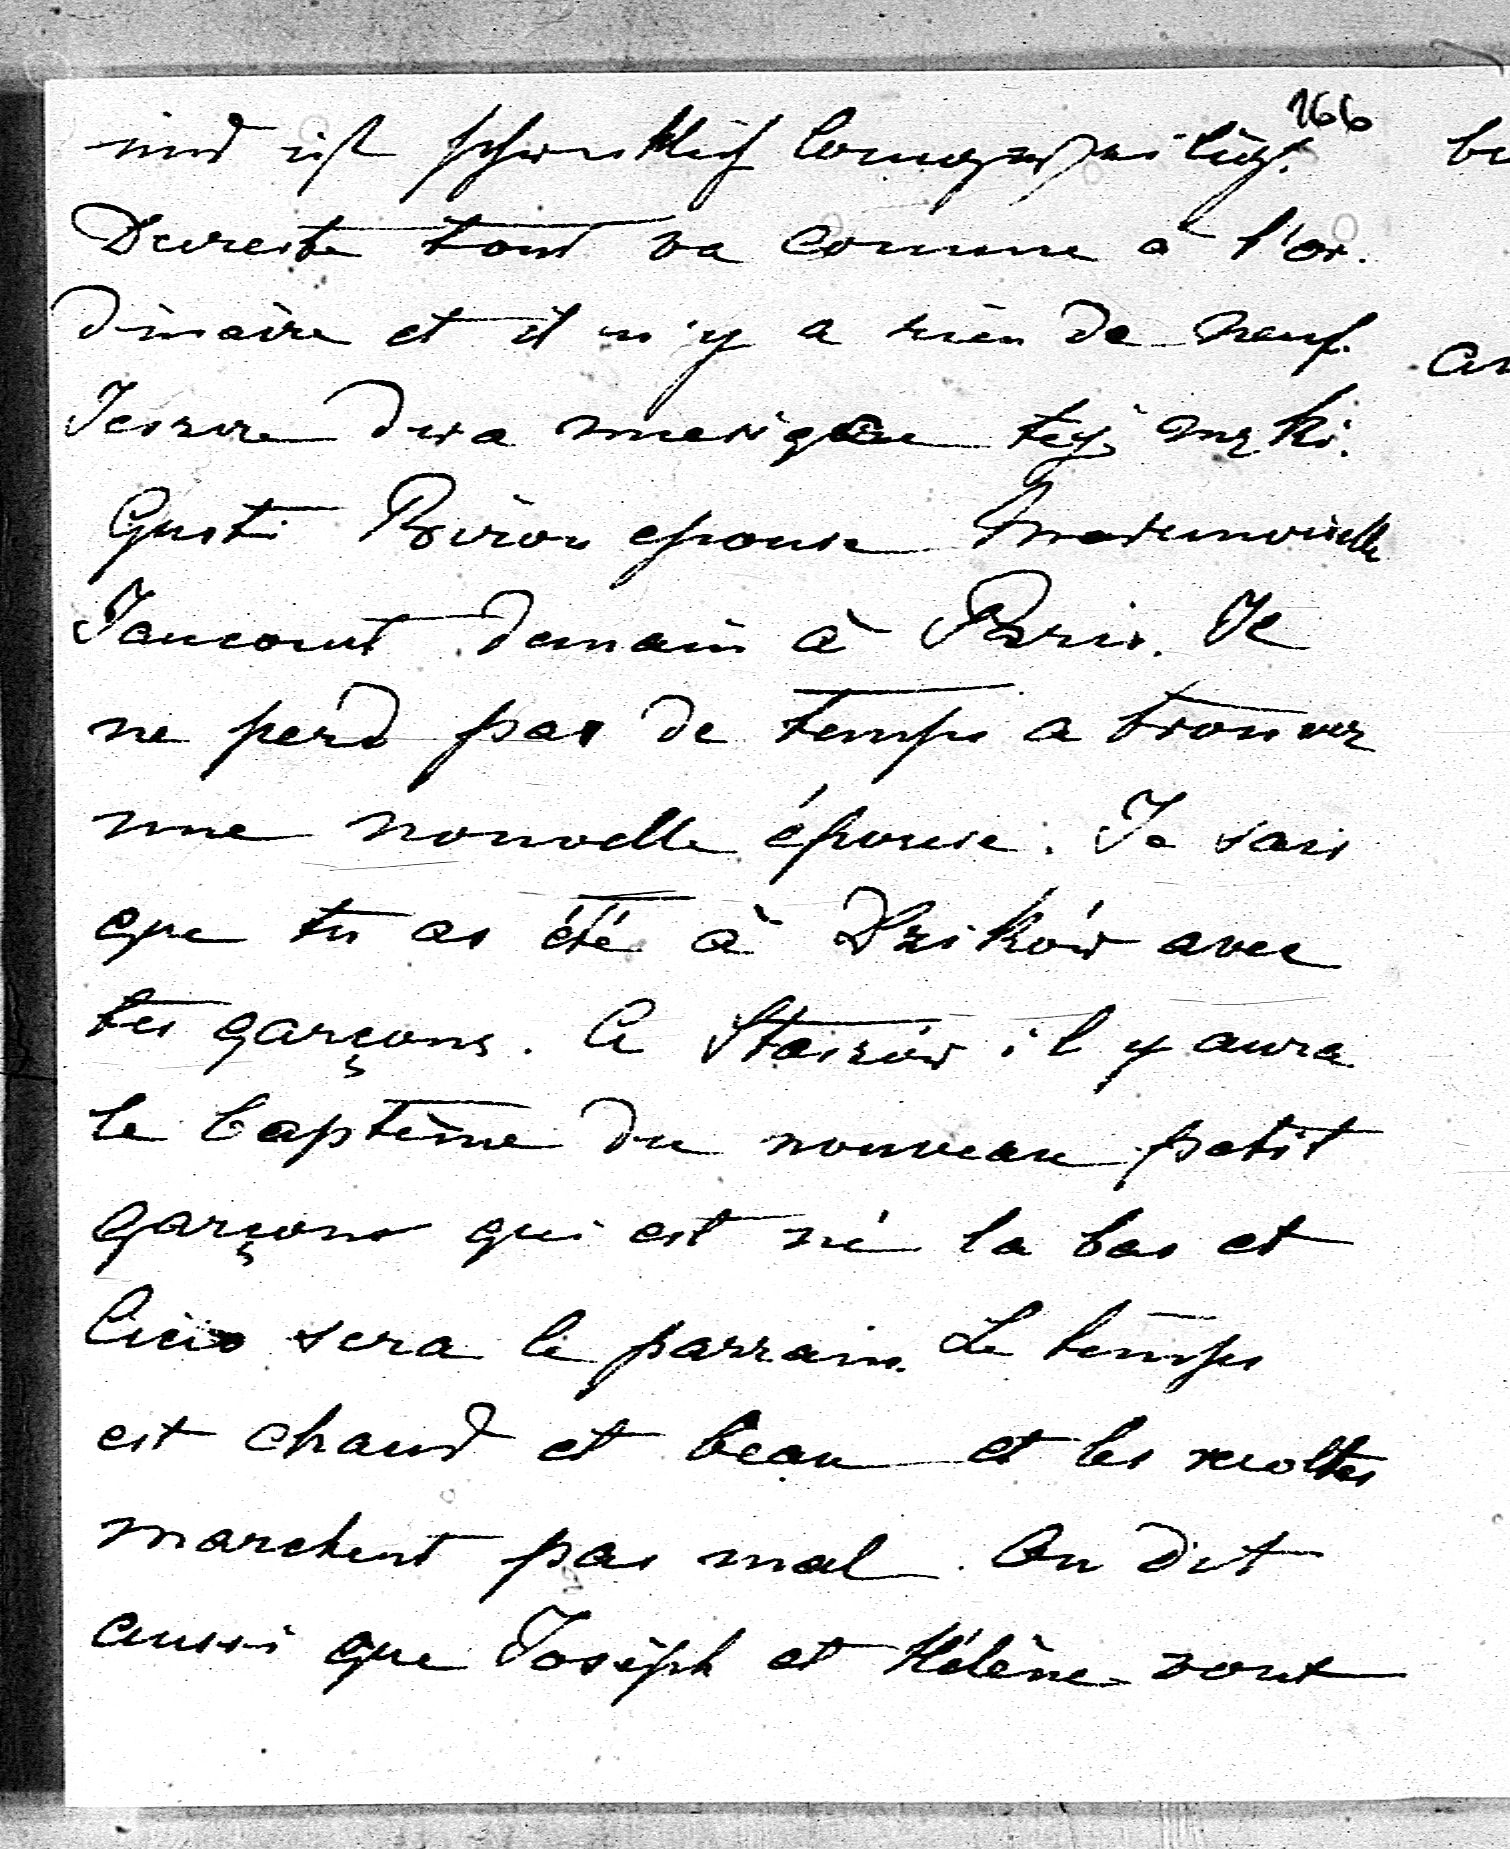 166
und ist schrecklich langweilig.
Dureste tout va comme à l'or.
dinaire et il n'y a rien de neuf.
Gusti Biron epouse Mademoiselle
Jaucourt demain à Paris. Il
ne perd pas de temps a trouver
une nouvelle épouse. Je sais
que tu as été à Dzików avec
tes garçons. A Staszów il y aura
le baptême du nouveau petit
garçons qui est né la bas et
sera le parrain. Le temps
est chaud et beau et les recoltes
marchent pas mal. On dit
aussi que Joséph et Hélène vont